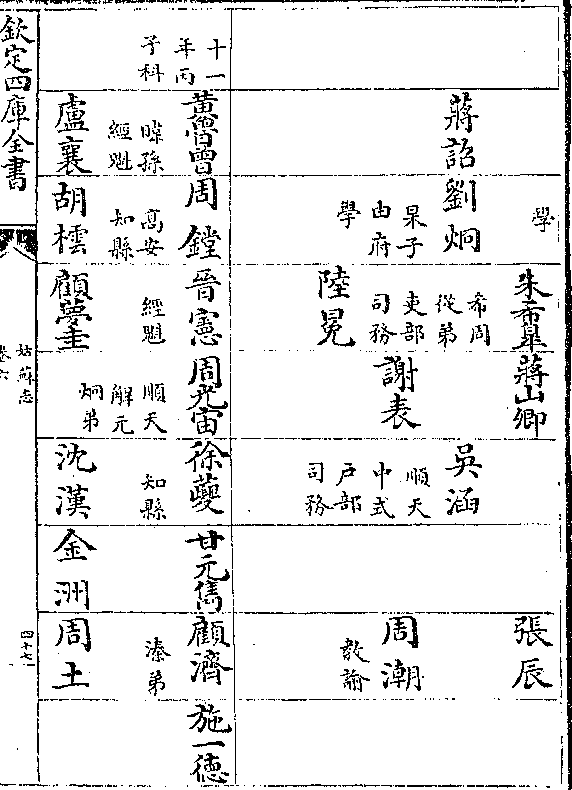 蔣詔
學
劉炯
杲子
由府
學
朱希臯
希周
從弟
吏部
司務
陸冕
蔣山卿
謝表
吳涵
順天
中式
戶部
司務
張辰
周潮
教諭
十一
年丙
子科
黃魯曾
暐孫
經魁
盧襄
周鏜
高安
知縣
胡橒
晉憲
經魁
顧夢圭
周光宙
順天
解元
炯弟
徐夔
知縣
沈漢
甘元雋
金洲
顧濟
溱弟
周土
施一德
欽定四庫全書
姑蘇志
卷六
四十七